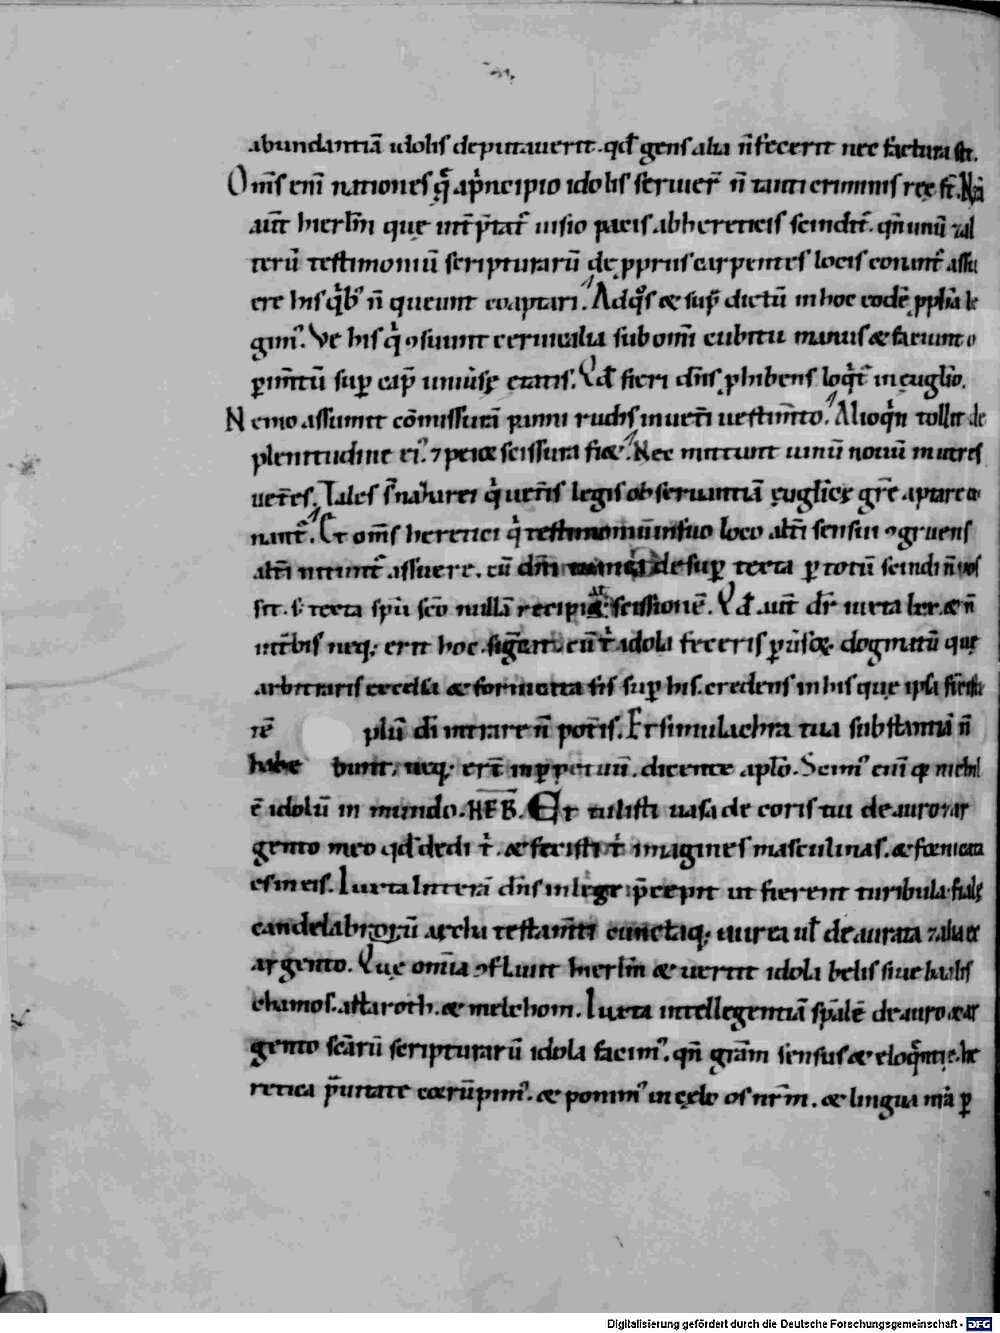 abundantiā idolis deputauerit. qđ gens alia ñ fecerit nec factura sit.
Om̄s eni nationes q̄ a pͥncipio idolis seruier̄ ñ tanti criminis reę st̄. Nā
aiūt hierłm que int̄ p̄tat͛ uisio pacis ab hereticis scindit͛. qñ unū ⁊ al
terū testimoniū scripturarū de ꝓpriis carpentes locis conant͛ assu
ere his qͥbꝰ ñ queunt coaptari. Ad qͦs & sup̄ dictū in hoc eodē ꝓph̄a le
gimꝰ. Vę his qͥ ↄsuunt ceruicalia sub om̄i cubitu manus & faciunt o
ꝑim̄tū suꝑ cap̄ uniusęꝫ etatis. Qđ fieri dn̄s ꝓhibens loqͥt͛ in euglio.
Nemo assumit cōmissurā panni rudis in ueti uestim̄to. Alioqͥn tollit de
plenitudine eiꝰ ⁊ peior scissura fi&. Nec mittunt uinū nouū in utres
ueteres. Tales s̄ nazarei qͥ ueteris legis obseruantiā euglicę gr̄e aptare co
nant͛. Et om̄s heretici qͥ testimoniū in suo loco alt̄i sensui ↄgruens
alt̄i nitunt͛ assuere. cū dn̄i tunica desuꝑ texta ꝑ totū scindi ñ pos
sit. s; texta spū sc̄o nullā recipiat scissionē. Qđ aūt dr̄ iuxta lxx. & ñ
intrabis neq; erit hoc significat. cū t͛ idola feceris ꝑuersoꝝ dogmatū que
arbitraris excelsa & fornicata sis suꝑ his. credens in his que ipsa finxisti
tē plū di intrare ñ poteris. Et simulachra tua substantiā ñ
habe bunt. neq; erit in ꝑpetuū. dicente apło. Scimꝰ eni qꝫ nichil
ē idolū in mundo. HEB. Et tulisti uasa decoris tui de auro ⁊ ar
gento meo qđ dedi t͛. & fecisti t͛ imagines masculinas. & fornicata
es in eis. Iuxta litterā dn̄s in lege p̄cepit ut fierent turibula. fialę
candelabrorū archa testam̄ti cunctaq; aurea uł de aurata ⁊ alia ex
argento. Que om̄ia ↄflauit hierłm & uertit idola belis siue baalis
chamos. astaroth. & melchom. Iuxta intellegentiā spalē de auro & ar
gento sc̄arū scripturarū idola facimꝰ. qñ gram̄ sensus & eloqͥntię. he
retica p̄uitate corrūpimꝰ. & ponimꝰ in cęlo os nr̄m. & lingua nr̄a ꝑ
Digitalisierung gefördert durch die Deutsche Forschungsgemeinschaft - DFG